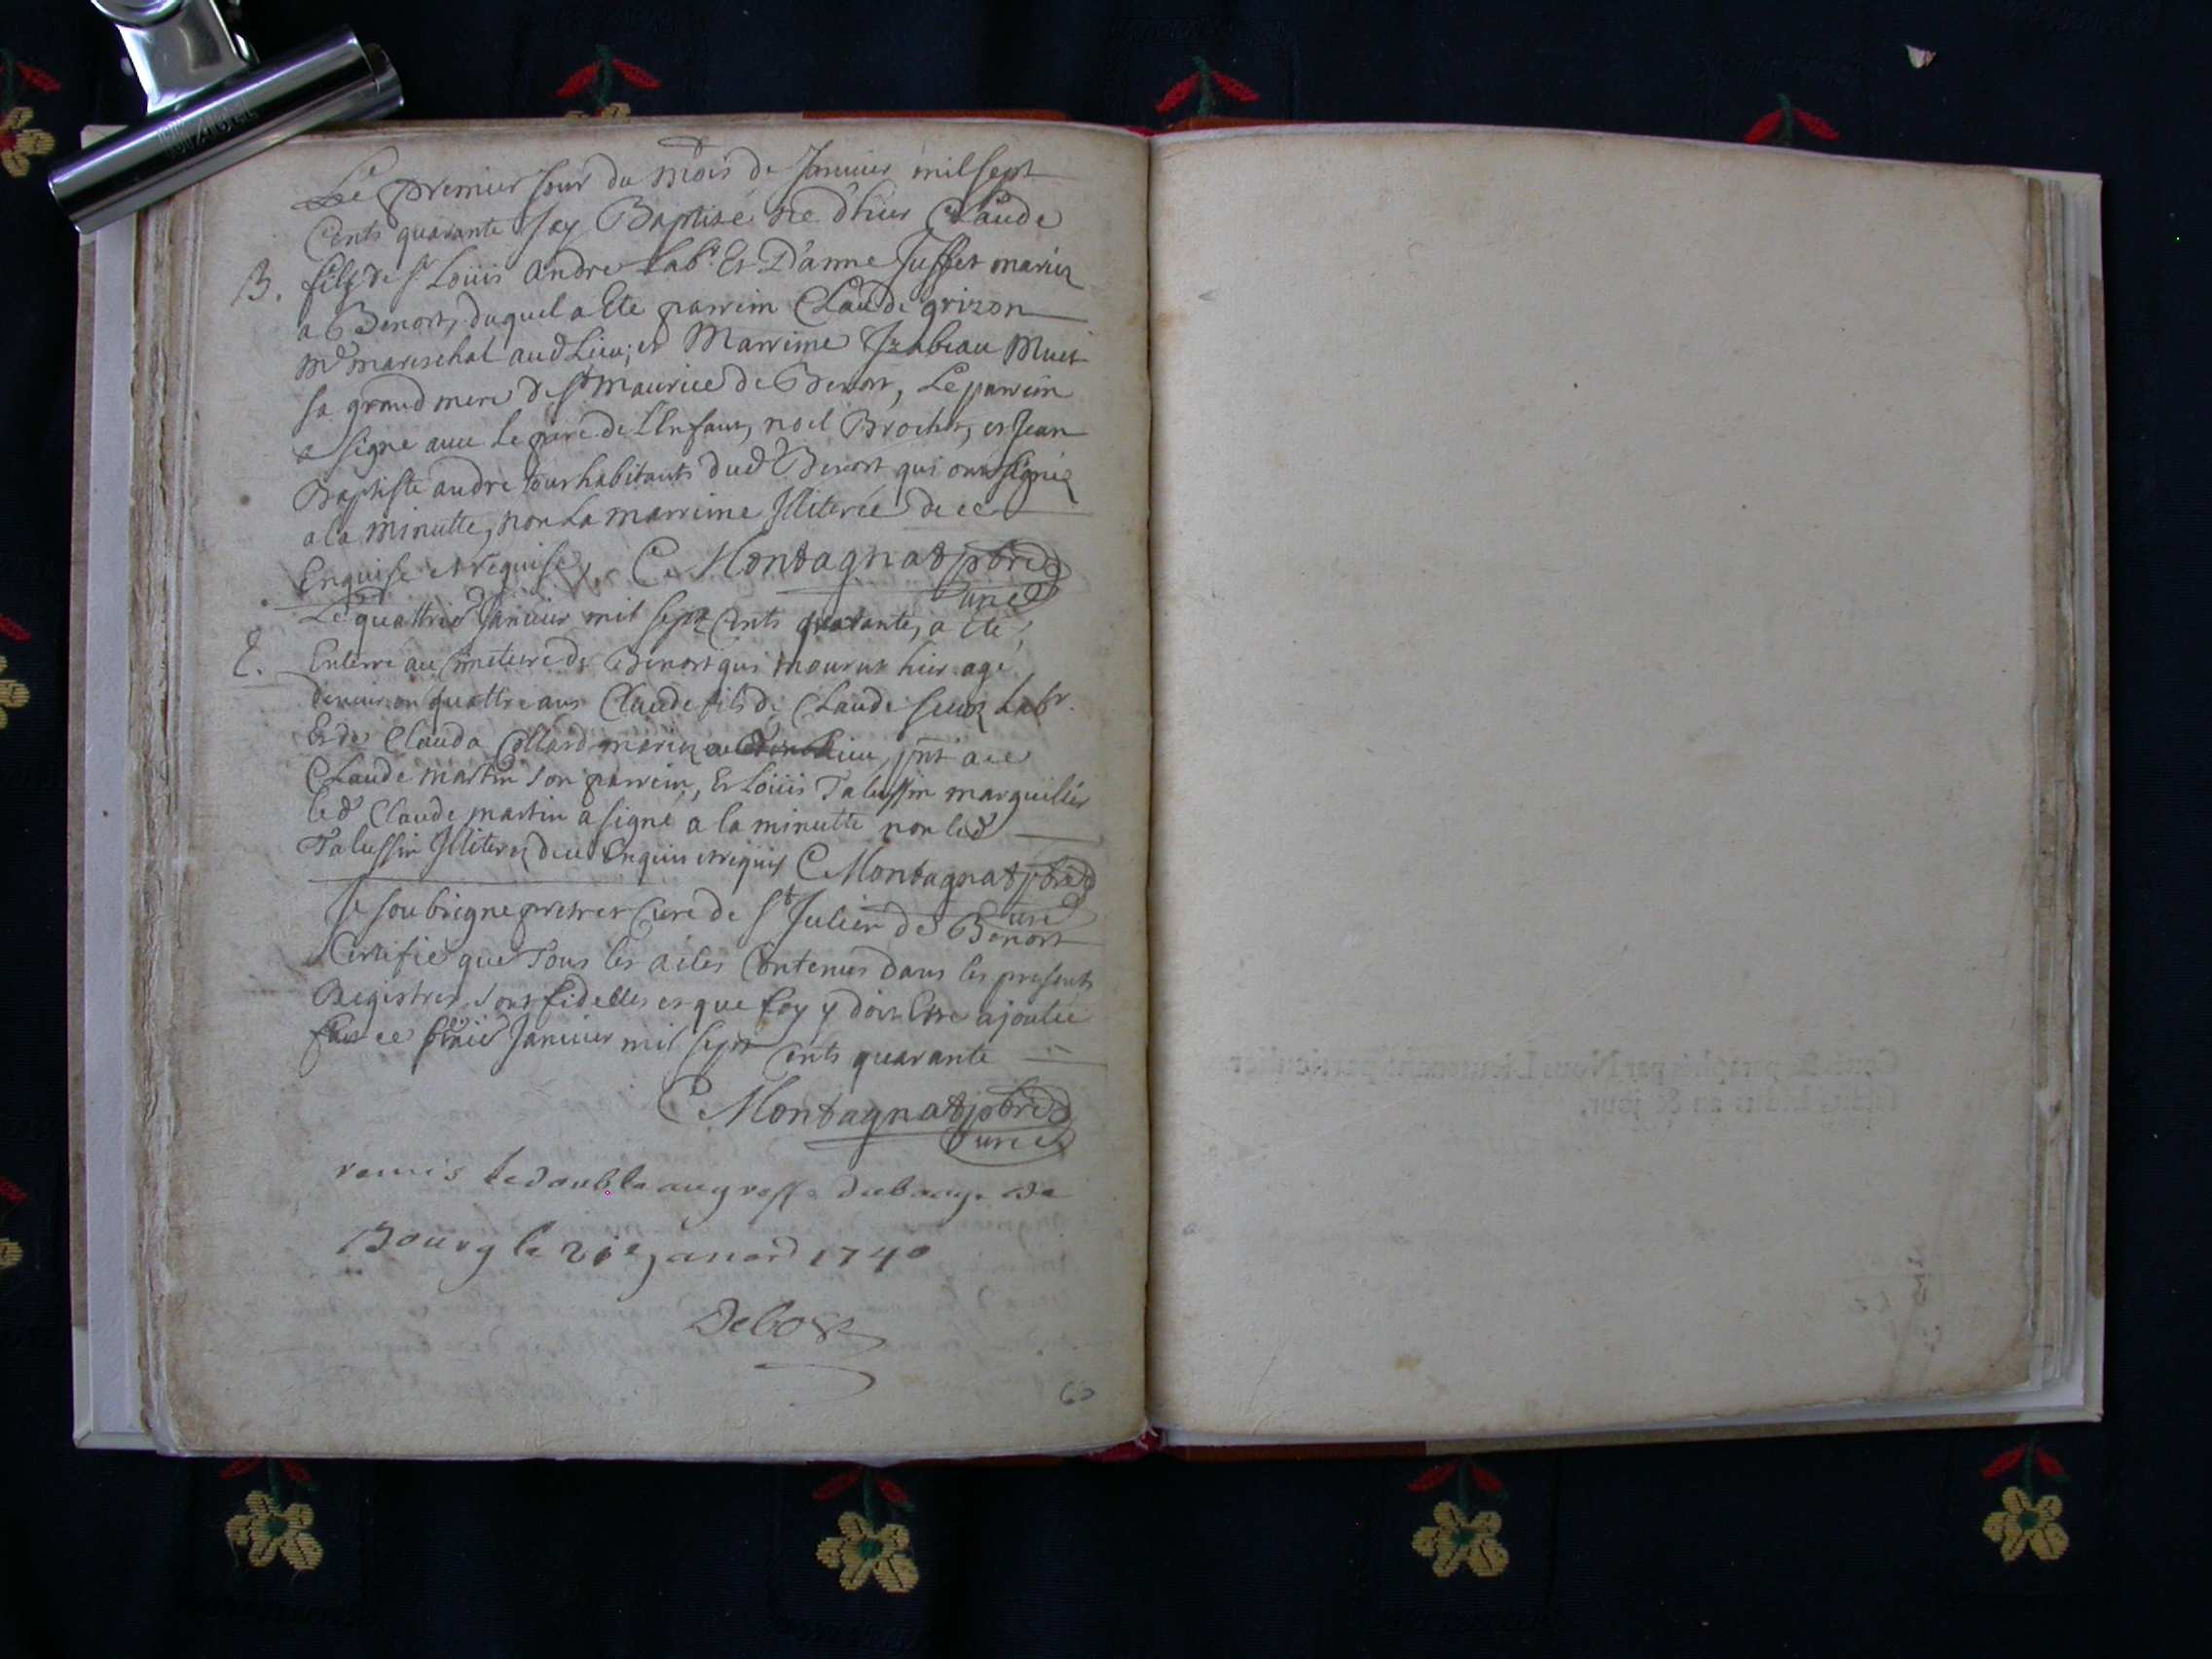 Le premier Jour du Mois de Janvier mil sept
Cents quarante J'ay Baptisé né d'hier Claude
B. fils de Sr Loüis andre Labr. Et D'anne Juffet mariez
a Benost, duquel a Eté parrein Claude grizon
Md mareschal aud Lieu; et Marreine Izabeau Muet
sa grand mere de St Maurice de Benost, Le parrein
a signé avec le pere de L'Enfant, noel Brochet, et Jean
Baptiste andre tous habitants dud Benost qui ont signé
a la minutte, non La marreine Illiterée de ce
Enquise et requise C. Montagnat pbre
Curé
Le quattrie Janvier mil sept Cents quarante, a Eté
E. Enterré au Cimetiere de Benost qui mourut hier agé
denviron quattre ans Claude fils de Claude Labr.
Et de Clauda Collard mariez Lieu, pnt a ce
Claude martin son parrein, Et Loüis Talussin marguillier
led Claude martin a signé a la minutte non led
Talussin Illiteré de ce Enquis et requis C Montagnat pbre
Curé
Je soubsigne prestre et Curé de St Julien de Benost
Certifie que Tous les actes Contenus dans les presents
Registres sont fidelles et que foy y doit Etre ajoutée
fait ce Janvier mil sept Cents quarante
C Montagnat pbre
Curé
remis le double au greffe du baage de
Bourg le 21e janvr 1740
Debost
60